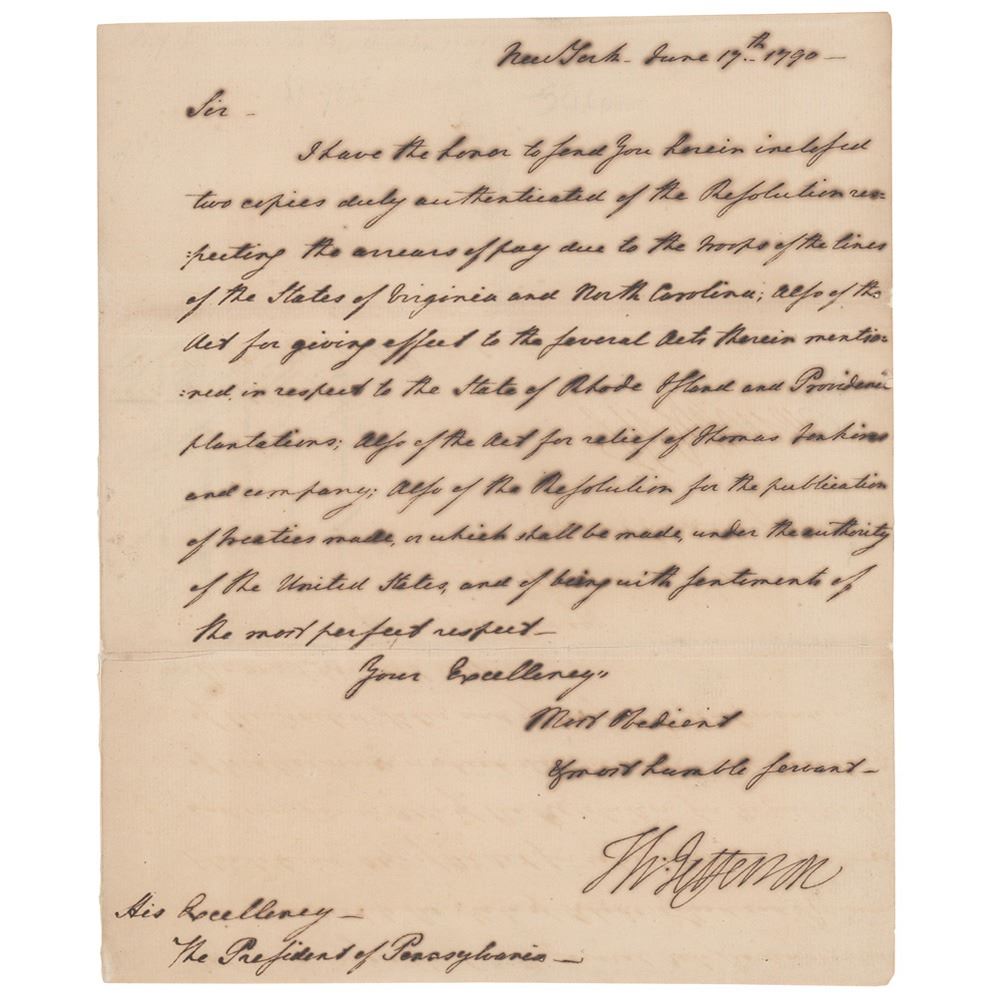 New York June 17th 1790 —
Sir —
I have the honor to send You herein inclosed
two copies duly authenticated of the Resolution res=
:pecting the arrears of pay due to the troops of the lines
of the States of Virginia and North Carolina; Also of the
Act for giving effect to the several Acts therein mentio=
:ned, in respect to the State of Rhode Island and Providence
plantations; Also of the Act for relief of Thomas Jenkins
and company; Also of the Resolution for the publication
of treaties made, or which shall be made, under the authority
of the United States, and of being with sentiments of
the most perfect respect —
Your Excellency's
Most Obedient
& most humble servant —
Th: Jefferson
His Excellency —
The President of Pennsylvania —